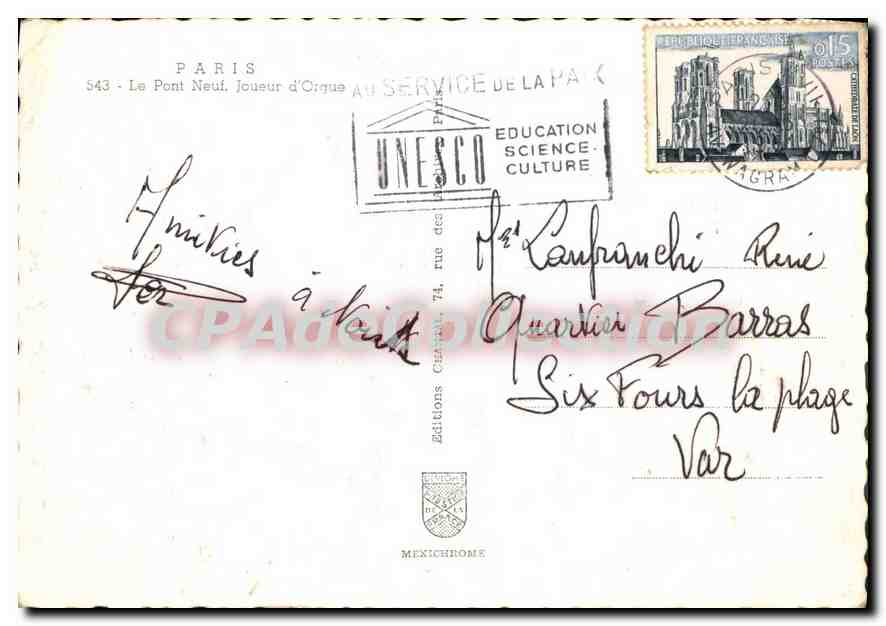 PARIS
543 - Le Pont Neuf, Joueur d'Orgue
AU SERVICE DE LA PAIX
UNESCO
EDUCATION
SCIENCE-
CULTURE
REPUBLIQUE FRANÇAISE
0,15
POSTES
CATHEDRALE DE LAON
PARIS
WAGRAM
Amitiés
à
Mr Lanfranchi René
Quartier Barras
Six Fours la plage
Var
Editions CHANTAL, 74, rue des Archives Paris
CPA de Collection
DE LA
FRANCE
MEXICHROME